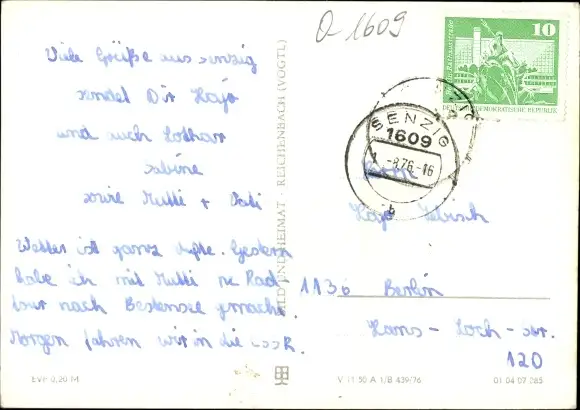 O-1609
10
DEUTSCHE DEMOKRATISCHE REPUBLIK
SENZIG
1609
-8.76-16
b
Viele Grüße aus Senzig
sendet Dir Kajo
und auch Lothar
Sabine
sowie Mutti + Vati
Wetter ist ganz dufte. Gestern
habe ich mit Mutti ne Rad
tour nach Bestensee gemacht.
Morgen fahren wir in die CSSR.
BILD UND HEIMAT · REICHENBACH (VOGTL)
Kajo
1136 Berlin
Hans-Loch-Str.
120
EVP 0,20 M
V 11 50 A 1/B 439/76
01 04 07 285